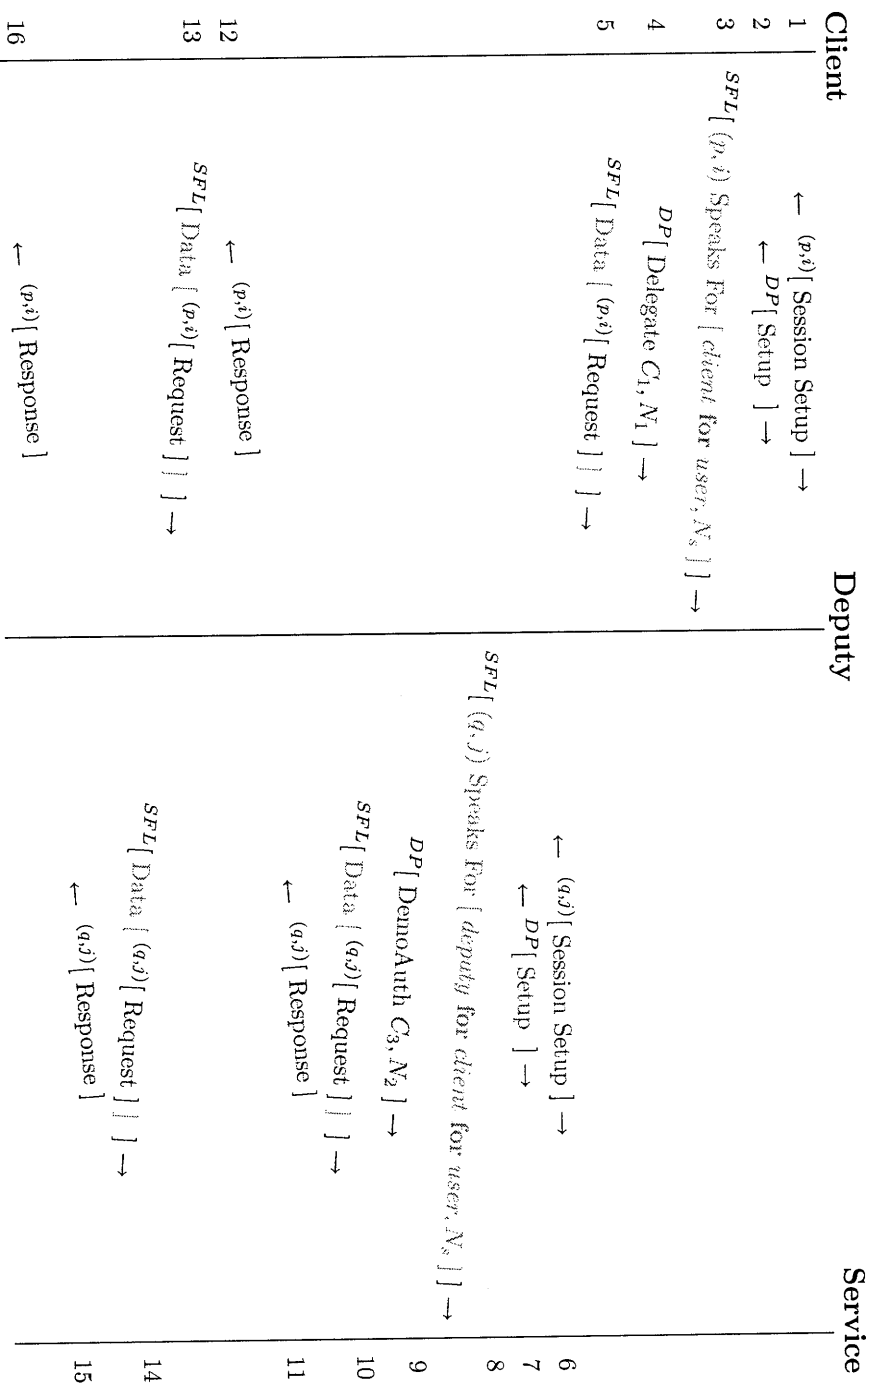 Client Deputy Service
1 ← (p,i)[ Session Setup ] →
2 ← DP[ Setup ] →
3 SFL[ (p, i) Speaks For [ client for user, Nₛ ] ] →
4 DP[ Delegate C₁, N₁ ] →
5 SFL[ Data [ (p,i)[ Request ] ] ] →
← (q,j)[ Session Setup ] → 6
← DP[ Setup ] → 7
SFL[ (q, j) Speaks For [ deputy for client for user, Nₛ ] ] → 8
DP[ DemoAuth C₃, N₂ ] → 9
SFL[ Data [ (q,j)[ Request ] ] ] → 10
← (q,j)[ Response ] 11
12 ← (p,i)[ Response ]
13 SFL[ Data [ (p,i)[ Request ] ] ] →
SFL[ Data [ (q,j)[ Request ] ] ] → 14
← (q,j)[ Response ] 15
16 ← (p,i)[ Response ]